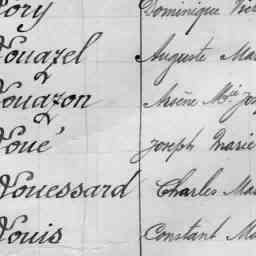 Dominique
Nouazel Auguste Ma
Nouazon Arsène Mie Jos
Noué Joseph Marie
Nouessard Charles Ma
Nouis Constant Ma